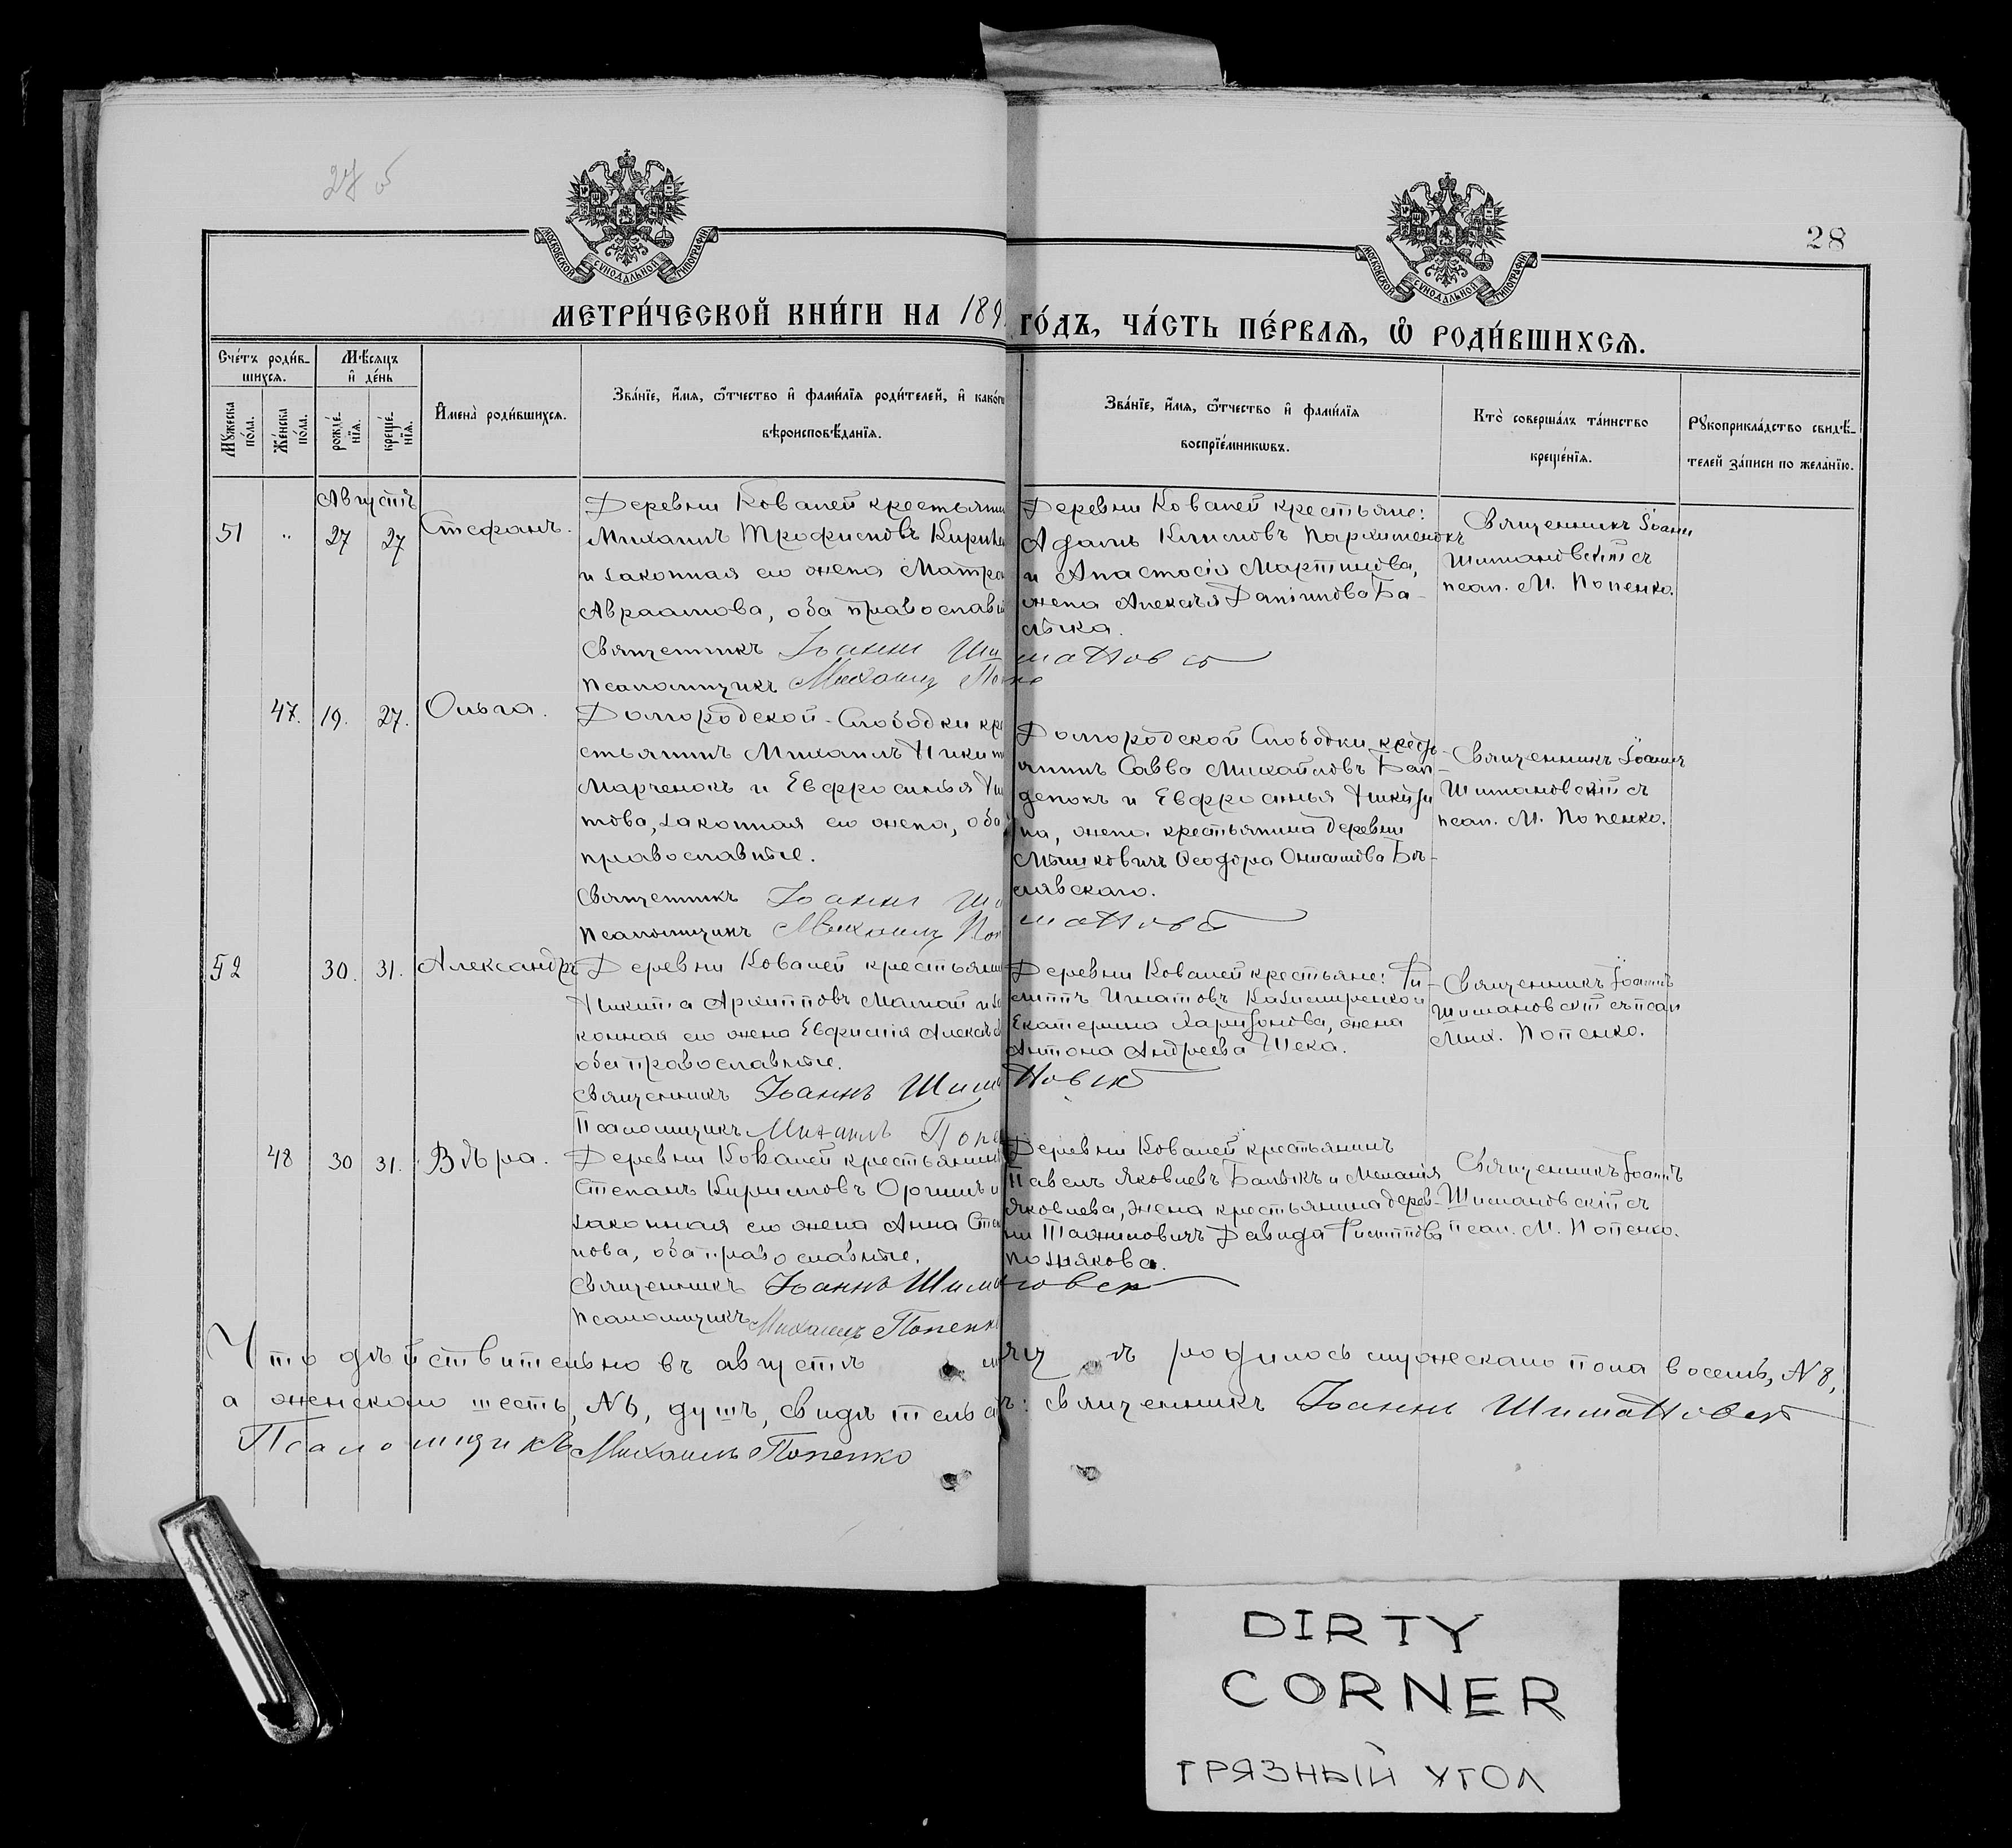 27 об
28
МОСКОВСКОЙ СѴНОДАЛЬНОЙ ТИПОГРАФІИ
МОСКОВСКОЙ СѴНОДАЛЬНОЙ ТИПОГРАФІИ
МЕТРИ́ЧЕСКОЙ КНИ́ГИ НА 189
ГО́ДЪ, ЧА́СТЬ ПЕ́РВАѦ, Ѽ РОДИ́ВШИХСѦ.
Сче́тъ роди́в-
шихся.
Мѣ́сяцъ
и҆ де́нь
Мꙋ́жеска
по́ла.
Же́нска
по́ла.
рожде́-
нїя.
креще́-
нїя.
И҆мена̀ роди́вшихся.
Зва́нїе, и҆́мя, ѻ҆́тчество и҆ фами́лїя роди́телей, и҆ како́гѡ
вѣроисповѣ́данїя.
Зва́нїе, и҆́мя, ѻ҆́тчество и҆ фами́лїя
воспрїе́мникѡвъ.
Кто̀ соверша́лъ та́инство
креще́нїя.
Рꙋкоприкла́дство свидѣ́-
телей за́писи по жела́нїю.
Августъ
51 " 27 27 Стефанъ.
Деревни Ковалей крестьянин
Михаилъ Трофимовъ Кирил
и законная его жена Матро
Авраамова, оба православн
Священникъ Іоаннъ Ши
Псаломщикъ Михаилъ Попе
Деревни Ковалей крестьяне:
Адамъ Климовъ Пархименокъ
и Анастасія Мартинова,
жена Алексѣя Даніилова Ба-
лыка.
мановск
Священникъ Іоаннъ
Шимановскій съ
псал. М. Попенко.
47. 19. 27. Ольга.
Домородской-Слободки кре
стьянинъ Михаилъ Никит
Марченокъ и Евфросинья Ти
това, законная его жена, оба
православные.
Священникъ Іоаннъ Ши
Псаломщикъ Михаилъ Поп
Домородской Слободки кресть-
янинъ Савва Михайловъ Бон-
денокъ и Евфросинья Никити
на, жена крестьянина деревни
Мышковичъ Ѳеодора Онисимова Бѣ-
лявскаго.
мановск
Священникъ Іоаннъ
Шимановскій съ
псал. М. Попенко.
52 30. 31. Александръ
Деревни Ковалей крестьянин
Никита Архиповъ Мамай и за
конная его жена Евфимія Алексѣе
оба православные.
Священникъ Іоаннъ Шима
Псаломщикъ Михаилъ Попе
Деревни Ковалей крестьяне: Фи-
липпъ Игнатовъ Казимиренко и
Екатерина Харитонова, жена
Антона Андреева Шека.
новск
Священникъ Іоаннъ
Шимановскій съ псал
Мих. Попенко.
48 30 31. Вѣра.
Деревни Ковалей крестьянин
Степанъ Кирилловъ Оришъ и
законная его жена Анна Сте
нова, оба православные.
Священникъ Іоаннъ Шима
Псаломщикъ Михаилъ Попенк
Деревни Ковалей крестьянинъ
Павелъ Яковлевъ Балыкъ и Меланія
Яковлева, жена крестьянина дерев-
ни Тажиловичъ Давида Филиппова
Позлякова.
новск
Священникъ Іоаннъ
Шимановскій съ
псал. М. Попенко.
Что дѣйствительно въ августѣ мѣсяцѣ родилось мужескаго пола восемь, № 8,
а женскаго шесть, № 6, душъ, свидѣтельст : священникъ Іоаннъ Шимановск
Псаломщикъ Михаилъ Попенко
DIRTY
CORNER
ГРЯЗНЫЙ УГОЛ